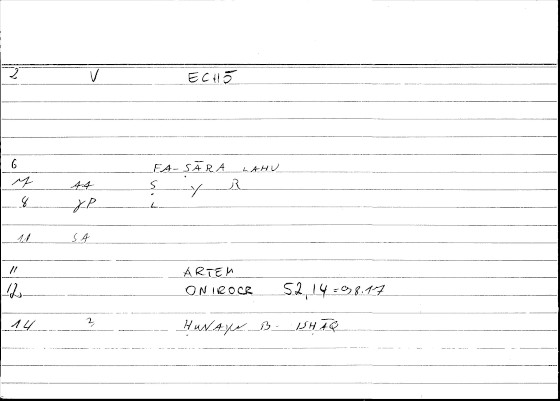 2 V ECHŌ
6 FA-SĀRA LAHU
7 AA Ṣ Y R
8 γP i
11 SA
11 ARTEM
12 ONIROCR 52,14=98.17
14 2 ḤUNAYN B- ISḤĀQ